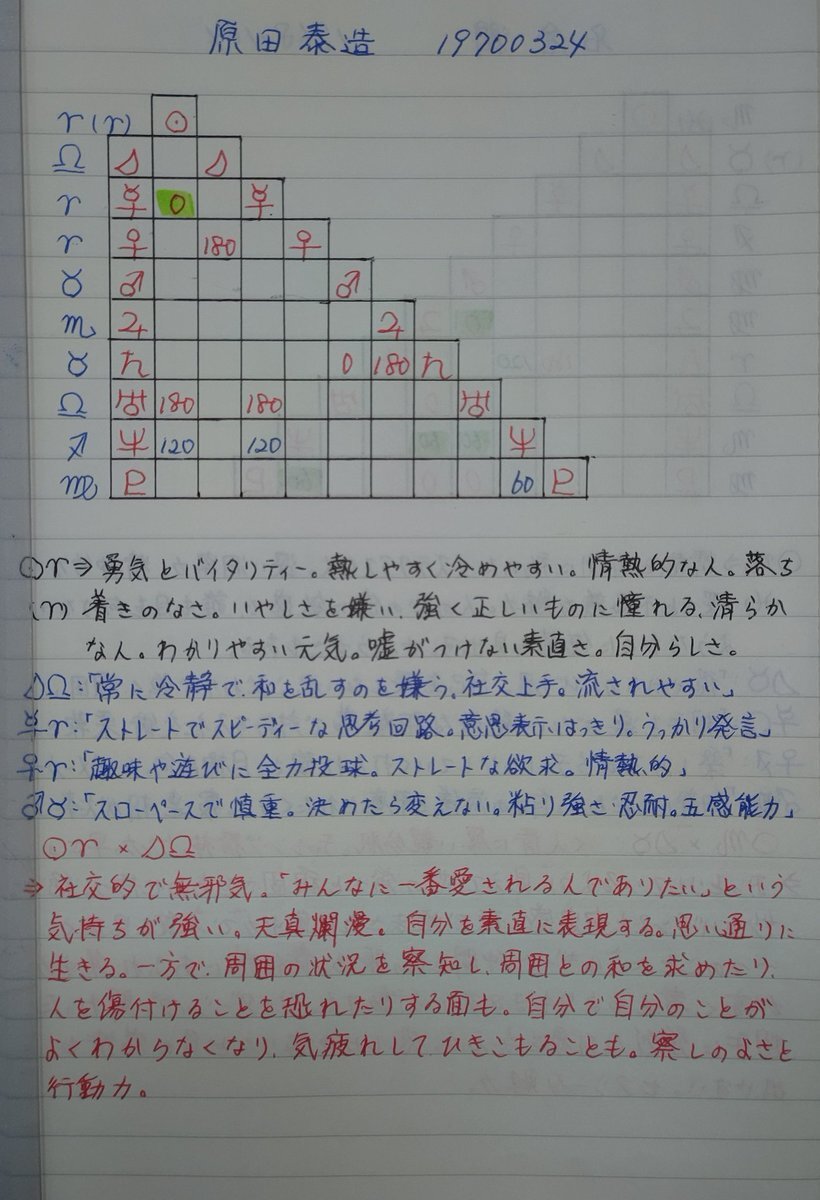 原田泰造　19700324
♈(♈) ☉
♎ ☽ ☽
♈ ☿ 0 ☿
♈ ♀ 180 ♀
♉ ♂ ♂
♏ ♃ ♃
♉ ♄ 0 180 ♄
♎ ♅ 180 180 ♅
♐ ♆ 120 120 ♆
♍ ♇ 60 ♇
☉♈⇒勇気とバイタリティー。熱しやすく冷めやすい。情熱的な人。落ち
(♈) 着きのなさ。いやしさを嫌い、強く正しいものに憧れる、清らか
なん。わかりやすい元気。嘘がつけない素直さ。自分らしさ。
☽♎:「常に冷静で、和を乱すのを嫌う。社交上手。流されやすい」
☿♈:「ストレートでスピーディーな思考回路。意思表示はっきり。うっかり発言」
♀♈:「趣味や遊びに全力投球。ストレートな欲求。情熱的」
♂♉:「スローペースで慎重。決めたら変えない。粘り強さ・忍耐。五感能力」
☉♈ × ☽♎
⇒ 社交的で無邪気。「みんなに一番愛される人でありたい」という
気持ちが強い。天真爛漫。自分を素直に表現する。思い通りに
生きる。一方で、周囲の状況を察知し、周囲との和を求めたり、
人を傷付けることを恐れたりする面も。自分で自分のことが
よくわからなくなり、気疲れしてひきこもることも。察しのよさと
行動力。